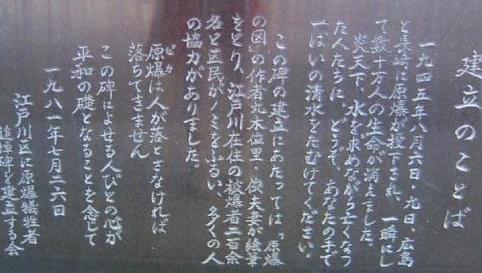 建立のことば
一九四五年八月六日・九日、広島
と長崎に原爆が投下され、一瞬にし
て数十万人の生命が消えました。
炎天下、水を求めながら亡くなっ
た人たちに、どうぞ、あなたの手で
一ぱいの清水をたむけてください。
この碑の建立にあたっては「原爆
の図」の作者丸木位里・俊夫妻が絵筆
をとり、江戸川在住の被爆者二百余
名と区民がノミをふるい、多くの人
の協力がありました。
ピカ
原爆は人が落とさなければ
落ちてきません
この碑によせる人びとの心が
平和の礎となることを念じて
一九八一年七月二六日
江戸川区に原爆犠牲者
追悼碑を建立する会